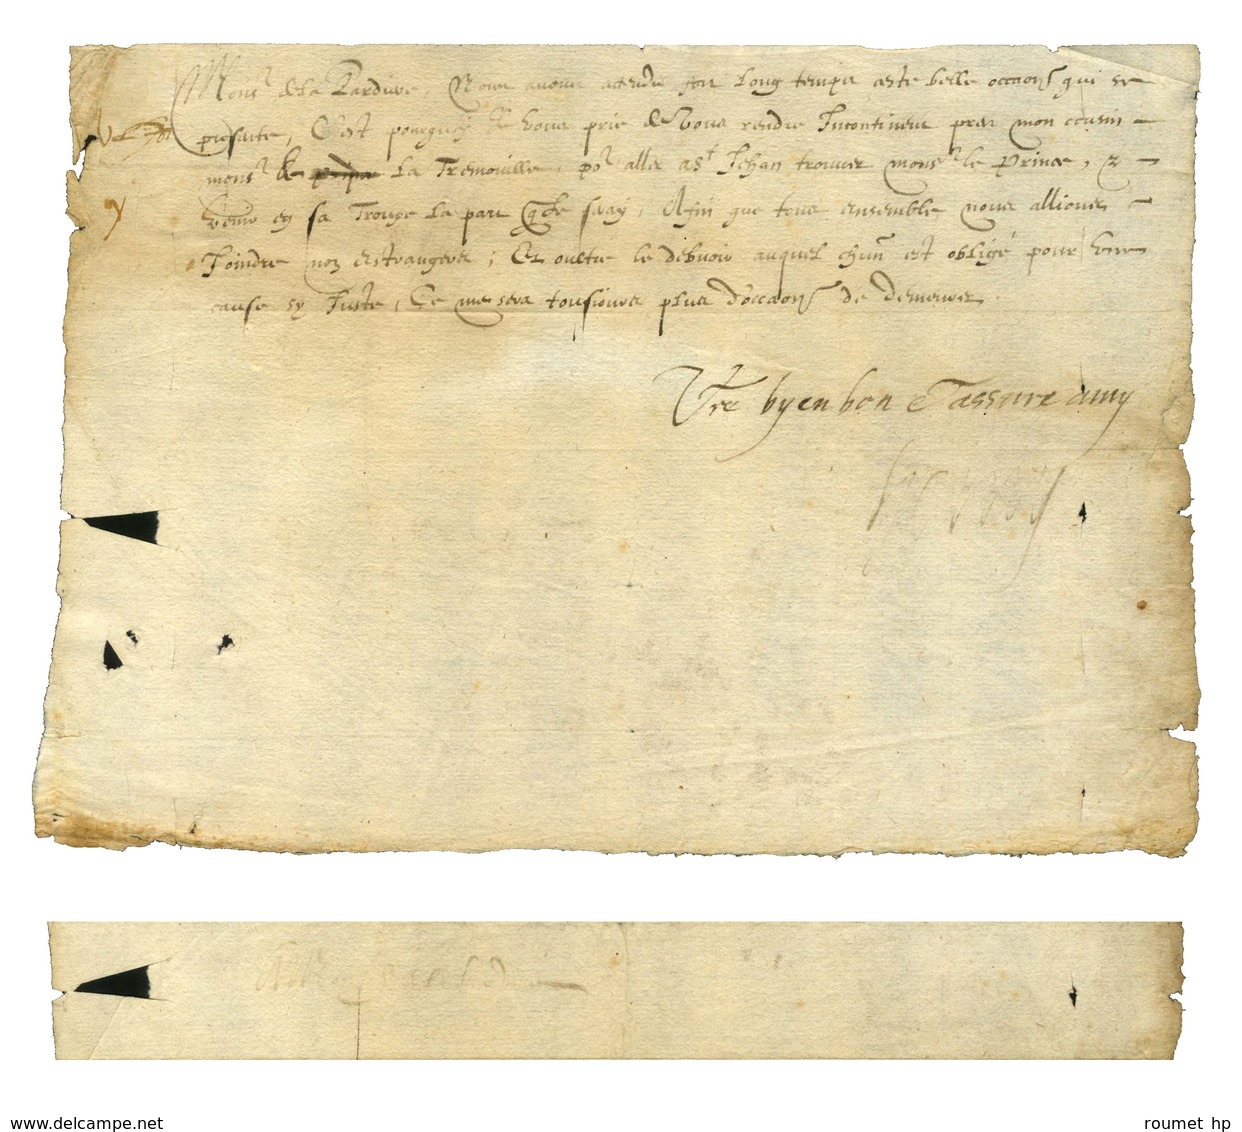 Mons^r de la Parduve Nous avons attendu fort Long temps ceste belle occaon qui se
presente, C'est pourquoy Je vous prie de vous rendre Incontinent pres mon cousin
mons^r de La Tremouille, po^r aller a S^t Jehan trouver mons^r le Prince, &
venir en sa Troupe La part que Je seray, Afin que tous ensemble nous allions
Joindre noz estrangers ; Et oultre le debvoir auquel chun est obligé pour une
cause sy Juste, Ce me sera tousjours plus d'occaon de demeurer.
V^re byen bon et assure amy
www.delcampe.net
roumet hp